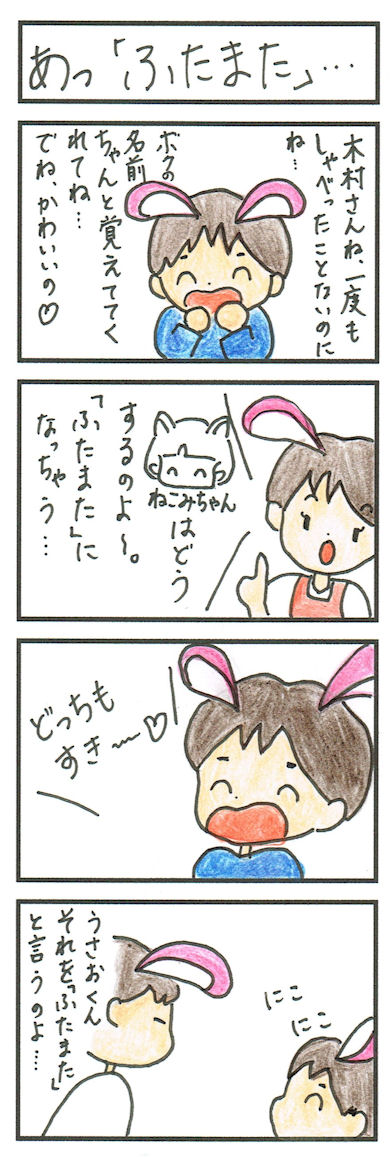 あっ「ふたまた」…
木村さんね、一度も
しゃべったことないのに
ね…
ボクの
名前
ちゃんと覚えててく
れてね…
でね、かわいいの♡
ねこみちゃん
はどう
するのよ〜。
「ふたまた」に
なっちゃう…
どっちも
すき〜♡
にこ
にこ
うさおくん
それを「ふたまた」
と言うのよ…